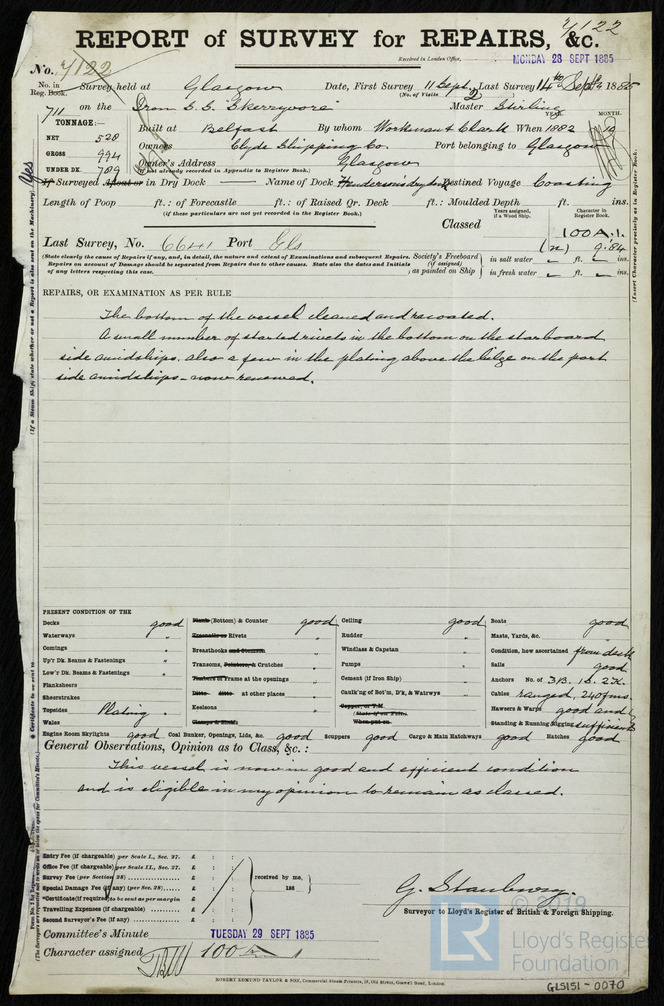 7122
REPORT of SURVEY for REPAIRS, &c.
Received in London Office, MONDAY 28 SEPT 1885
No. 7122
No. in Reg. Book. Survey held at Glasgow Date, First Survey 11 Sept Last Survey 14th Sept 1885
(No. of Visits 2)
711 on the Iron S.S. "Skerryvore" Master Stirling
TONNAGE:— YEAR. MONTH.
NET 528 Built at Belfast By whom Workman & Clark When 1882 10
GROSS 994 Owners Clyde Shipping Co. Port belonging to Glasgow
UNDER DK. 789 Owner's Address Glasgow
(if not already recorded in Appendix to Register Book.)
If Surveyed Afloat or in Dry Dock — Name of Dock Henderson's dry dock Destined Voyage Coasting
Length of Poop ft.: of Forecastle ft.: of Raised Qr. Deck ft.: Moulded Depth ft. ins.
(if these particulars are not yet recorded in the Register Book.)
Years assigned, if a Wood Ship. Character in Register Book.
Classed 100A.1.
Last Survey, No. 6641 Port Gls 9.84
(State clearly the cause of Repairs if any, and, in detail, the nature and extent of Examinations and subsequent Repairs. Repairs on account of Damage should be separated from Repairs due to other causes. State also the dates and Initials of any letters respecting this case.
Society's Freeboard (if assigned) as painted on Ship in salt water — ft. — ins.
in fresh water — ft. — ins.
REPAIRS, OR EXAMINATION AS PER RULE
The bottom of the vessel cleaned and recoated.
A small number of started rivets in the bottom on the starboard
side amidships, also a few in the plating above the bilge on the port
side amidships – now renewed.
PRESENT CONDITION OF THE
Decks good
Waterways "
Comings "
Up'r Dk. Beams & Fastenings "
Low'r Dk. Beams & Fastenings "
Planksheers
Sheerstrakes
Topsides Plating "
Wales
Plank (Bottom) & Counter good
Treenails or Rivets "
Breasthooks and Stemson "
Transoms, Pointers, & Crutches "
Timbers or Frame at the openings "
Ditto Ditto at other places "
Keelsons "
Clamps & Shelfs
Ceiling good
Rudder "
Windlass & Capstan "
Pumps "
Cement (if Iron Ship) "
Caulk'ng of Bot'm, D'k, & Watrways "
Copper, or Y.M.
(State if on Felts.
When put on.
Boats good
Masts, Yards, &c. "
Condition, how ascertained from deck
Sails good
Anchors No. of 3B. 1S. 2K.
Cables ranged, 240fms.
Hawsers & Warps good and
Standing & Running Rigging sufficient
Engine Room Skylights good Coal Bunker, Openings, Lids, &c. good Scuppers good Cargo & Main Hatchways good Hatches good
General Observations, Opinion as to Class, &c.:
This vessel is now in good and efficient condition
and is eligible in my opinion to remain as classed.
Entry Fee (if chargeable) per Scale I., Sec. 27. £ : :
Office Fee (if chargeable) per Scale II., Sec. 27. £ : :
Survey Fee (per Section 28) £ : :
Special Damage Fee (if any) (per Sec. 28) £ : :
*Certificate (if required) to be sent as per margin £ : :
Travelling Expenses (if chargeable) £ : :
Second Surveyor's Fee (if any) £ : :
received by me,
188
G. Stanbury.
Surveyor to Lloyd's Register of British & Foreign Shipping.
Committee's Minute TUESDAY 29 SEPT 1885
Character assigned 100A1
ROBERT EDMUND TAYLOR & SON, Commercial Steam Printers, 19, Old Street, Goswell Road, London.
Yes
(If a Steam Ship, state whether or not a Report is also sent on the Machinery)
(Insert Character precisely as in Register Book.
© 2019
LR
Lloyd's Register
Foundation
GLS151-0070